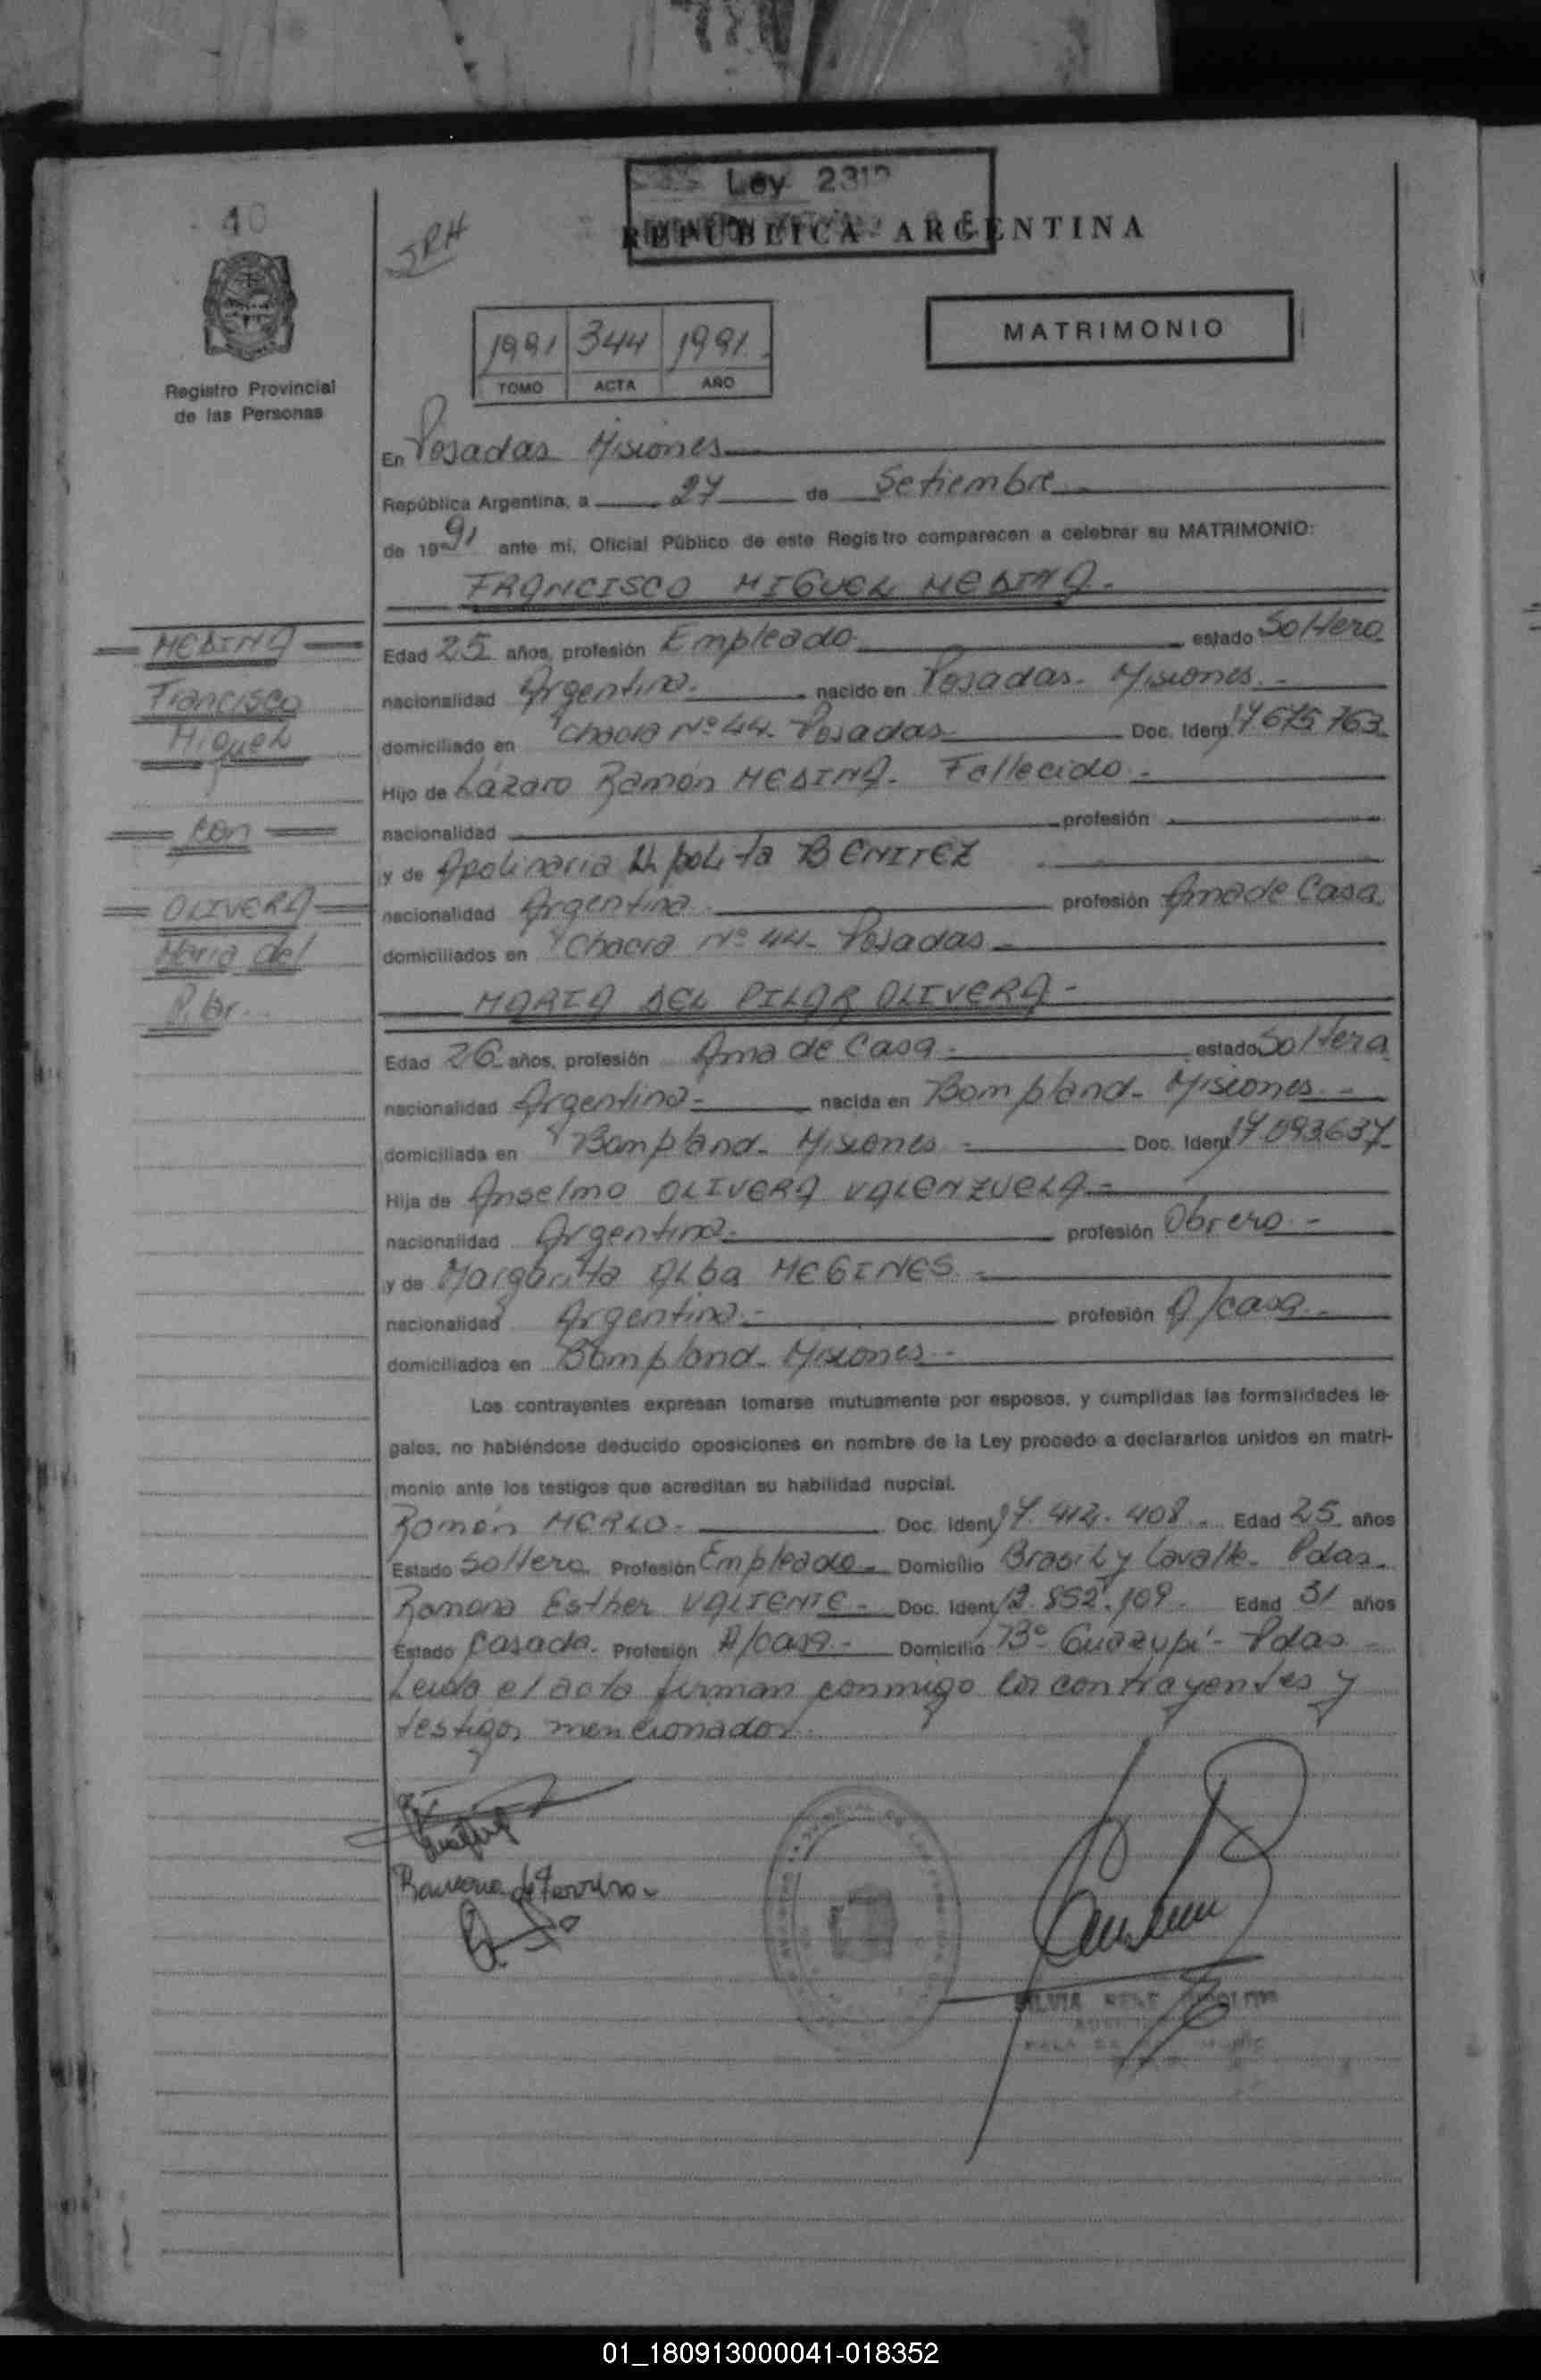 40
Ley 231
REPUBLICA ARGENTINA
SRH
Registro Provincial
de las Personas
1991 344 1991
TOMO ACTA AÑO
MATRIMONIO
En Posadas Misiones
República Argentina, a 27 de Setiembre
de 19 91 ante mi, Oficial Público de este Registro comparecen a celebrar su MATRIMONIO:
FRANCISCO MIGUEL MEDINA.-
MEDINA
Francisco
Miguel
con
OLIVERA
María del
Pilar.
Edad 25 años, profesión Empleado estado Soltero
nacionalidad Argentina. nacido en Posadas. Misiones.-
domiciliado en Chacra Nº 44. Posadas Doc. Ident. 17.675.763.
Hijo de Lázaro Ramón MEDINA. Fallecido.-
nacionalidad profesión
y de Apolinaria Hipolita BENITEZ
nacionalidad Argentina profesión Ama de Casa.
domiciliados en Chacra Nº 44. Posadas
MARIA DEL PILAR OLIVERA-
Edad 26 años, profesión Ama de Casa. estado Soltera
nacionalidad Argentina- nacida en Bompland- Misiones.-
domiciliada en Bompland- Misiones Doc. Ident 17.093.637
Hija de Anselmo OLIVERA VALENZUELA-
nacionalidad Argentina- profesión Obrero.-
y de Margarita Alba MEGINES.
nacionalidad Argentina.- profesión A/casa.
domiciliados en Bompland- Misiones.-
Los contrayentes expresan tomarse mutuamente por esposos, y cumplidas las formalidades le-
gales, no habiéndose deducido oposiciones en nombre de la Ley procedo a declararlos unidos en matri-
monio ante los testigos que acreditan su habilidad nupcial.
Ramón MERLO. Doc. Ident 17.412.408. Edad 25 años
Estado Soltero Profesión Empleado. Domicilio Brasil y Lavalle. Pdas.
Ramona Esther VALIENTE. Doc. Ident 13.852.109. Edad 31 años
Estado Casada. Profesión A/casa.- Domicilio Bº Guazupi- Pdas
Leida el acta firman conmigo los contrayentes y
testigos mencionados.
Ramona de Ferreira
SILVIA RENE
01_180913000041-018352